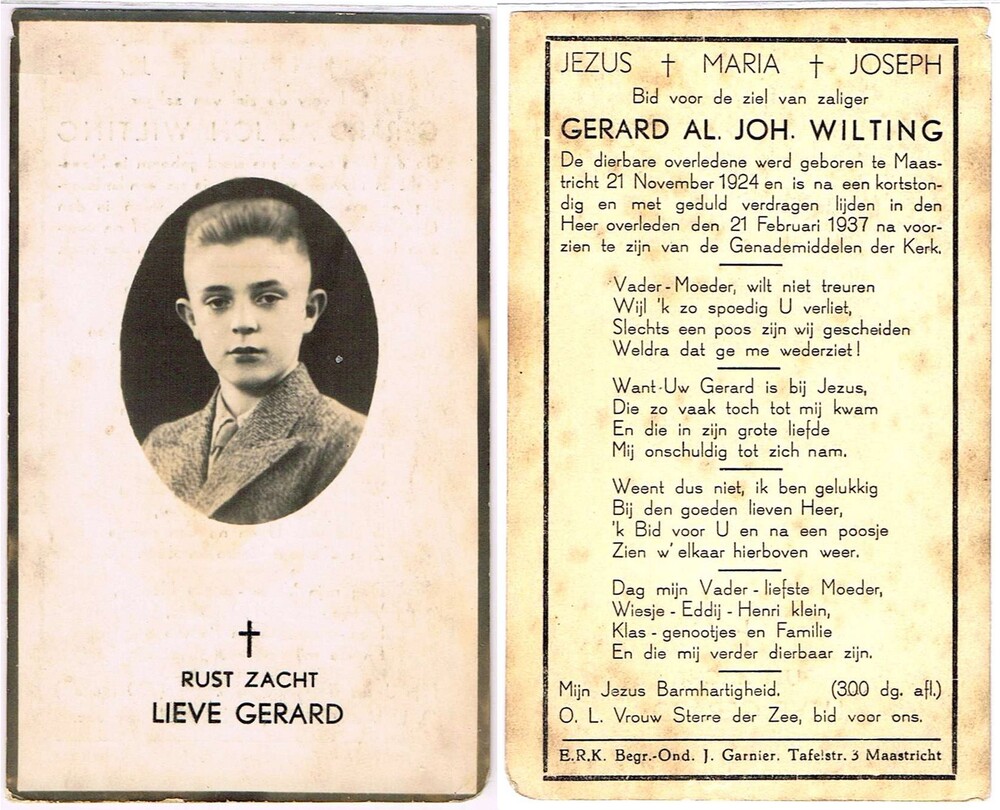 RUST ZACHT
LIEVE GERARD
JEZUS † MARIA † JOSEPH
Bid voor de ziel van zaliger
GERARD AL. JOH. WILTING
De dierbare overledene werd geboren te Maas-
tricht 21 November 1924 en is na een kortston-
dig en met geduld verdragen lijden in den
Heer overleden den 21 Februari 1937 na voor-
zien te zijn van de Genademiddelen der Kerk.
Vader-Moeder, wilt niet treuren
Wijl 'k zo spoedig U verliet,
Slechts een poos zijn wij gescheiden
Weldra dat ge me wederziet!
Want-Uw Gerard is bij Jezus,
Die zo vaak toch tot mij kwam
En die in zijn grote liefde
Mij onschuldig tot zich nam.
Weent dus niet, ik ben gelukkig
Bij den goeden lieven Heer,
'k Bid voor U en na een poosje
Zien w' elkaar hierboven weer.
Dag mijn Vader - liefste Moeder,
Wiesje - Eddij - Henri klein,
Klas - genootjes en Familie
En die mij verder dierbaar zijn.
Mijn Jezus Barmhartigheid. (300 dg. afl.)
O. L. Vrouw Sterre der Zee, bid voor ons.
E.R.K. Begr.-Ond. J. Garnier. Tafelstr. 3 Maastricht